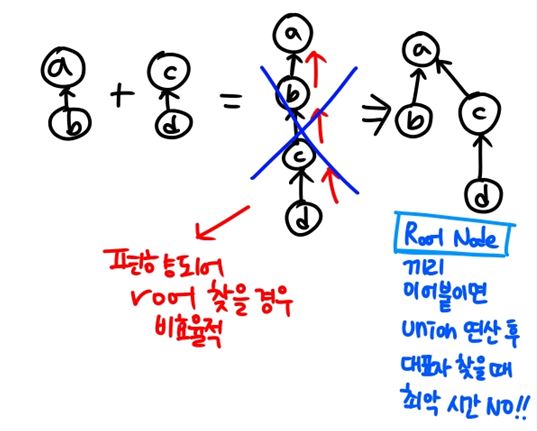 a + c = a ⇒ a
b d b b c
c
d d
편향되어
root 찾을 경우
비효율적
Root Node
끼리
이어붙이면
union 연산 후
대표자 찾을 때
최악 시간 NO!!